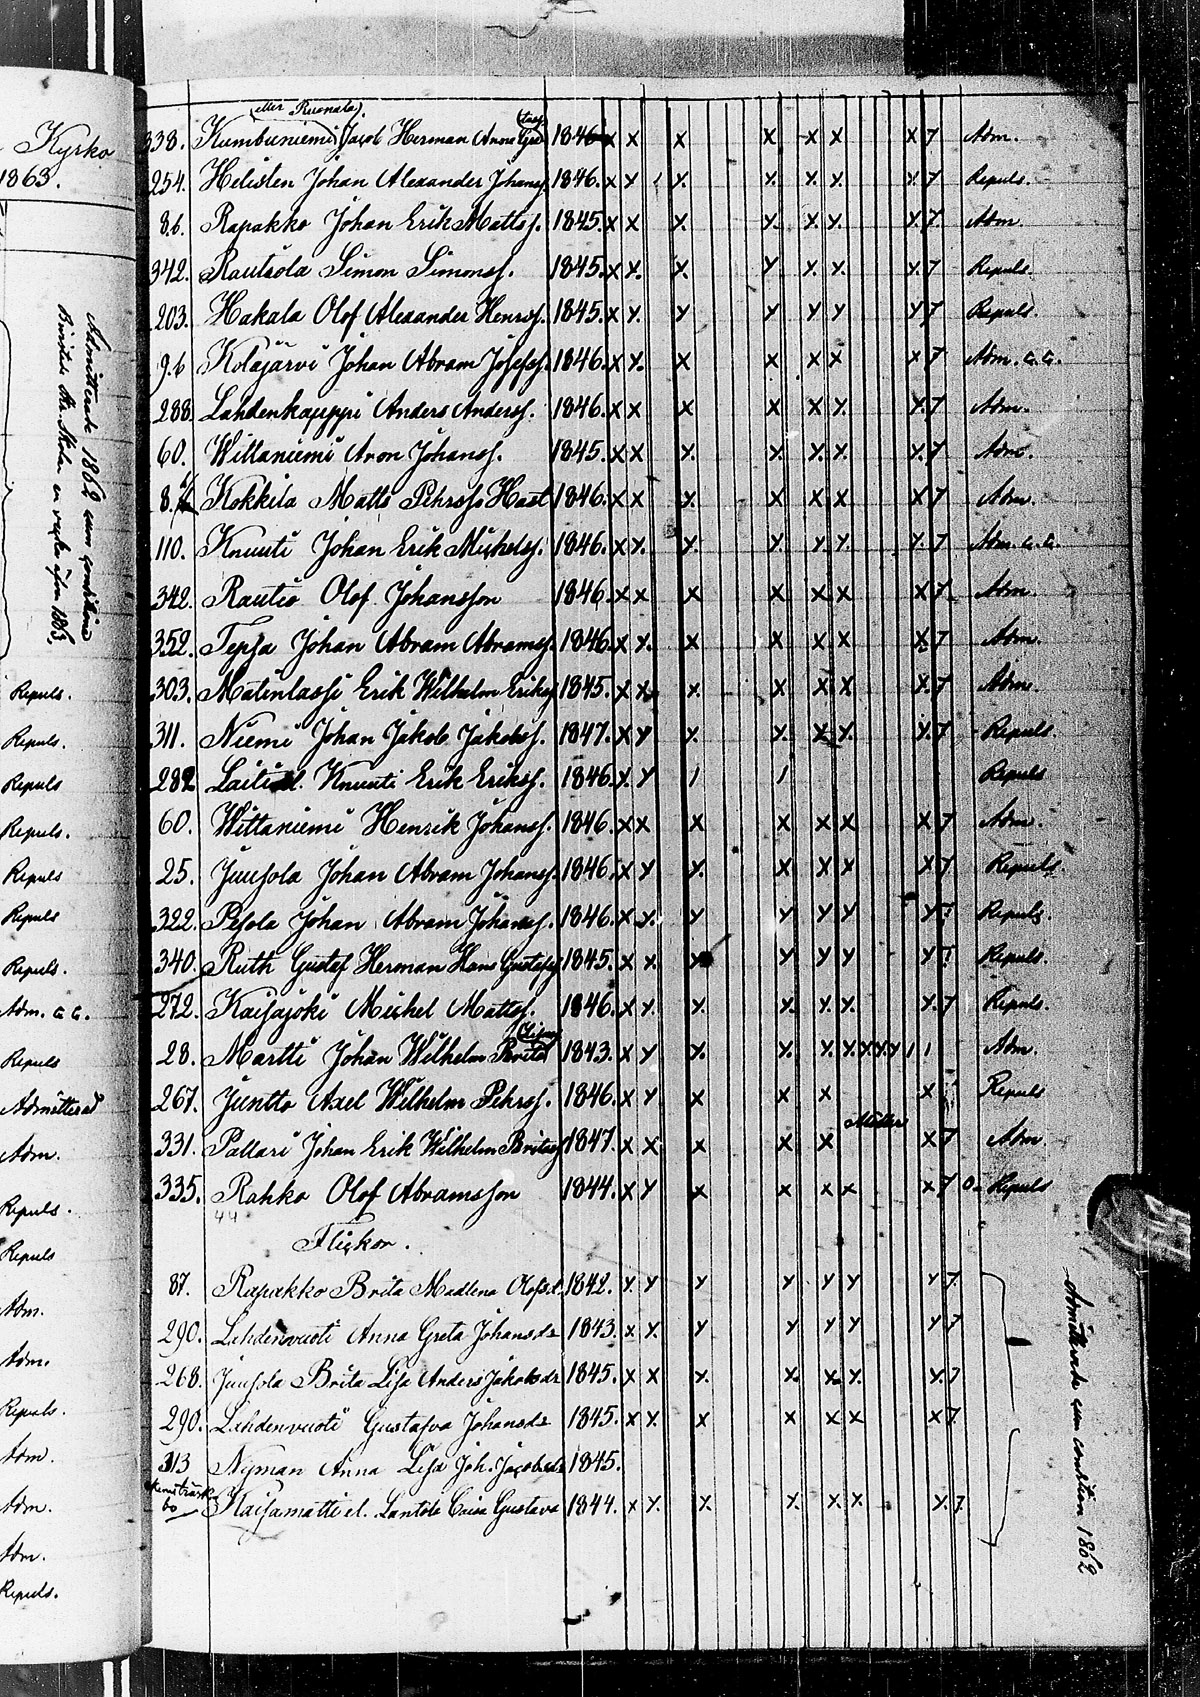 Kyrko
1863.
Admitterade 1862
Repuls.
Repuls.
Repuls
Repuls.
Repuls
Repuls
Repuls.
Adm. c. c.
Repuls
Admitterad
Adm.
Repuls.
Repuls
Adm.
Adm.
Repuls.
Adm.
Adm.
Adm.
Repuls.
eller Ruonala
338. Kumbuniemi Jacob Herman Anna 1846 x x x x x x x 7 Adm.
254. Helisten Johan Alexander Johanss. 1846. x x x x x x x 7 Repuls.
86. Rapakko Johan Erik Matts. 1845. x x x x x x x 7 Adm.
342. Rautiola Simon Simonss. 1845. x x x x x x x 7 Repuls.
203. Hakala Olof Alexander Henrss. 1845. x x x x x x x 7 Repuls.
96 Kolajärvi Johan Abram Josefss. 1846. x x x x x x x 7 Adm. c. c.
288 Lahdenkauppi Anders Anderss. 1846. x x x x x x x 7 Adm.
60. Wittaniemi Aron Johanss. 1845. x x x x x x x 7 Adm.
Kokkila Matts Pehrss. Hast 1846. x x x x x x x 7 Adm.
110. Knuuti Johan Erik Michelss. 1846. x x x x x x x 7 Adm. c. c.
342. Rautio Olof Johansson 1846 x x x x x x x 7 Adm.
352. Tepsa Johan Abram Abramss. 1846. x x x x x x x 7 Adm.
303. Matinlassi Erik Wilhelm Erikss 1845. x x x x x x x 7 Adm.
311. Niemi Johan Jakob Jakobss. 1847. x x x x x x x 7 Repuls.
282 Laiti el. Knuuti Erik Erikss. 1846. x x / / Repuls
60. Wittaniemi Henrik Johanss. 1846. x x x x x x x 7 Adm.
25. Juusola Johan Abram Johanss. 1846. x x x x x x x 7 Repuls.
322. Pesola Johan Abram Johanss. 1846. x x x x x x x 7 Repuls.
340. Ruth Gustaf Herman Hans Gustafss 1845. x x x x x x x 7 Repuls.
272. Kaisajoki Michel Matts. 1846. x x x x x x x 7 Repuls.
28. Martti Johan Wilhelm 1843. x x x x x x x x x / / Adm.
267. Juntto Axel Wilhelm Pehrss. 1846. x x x x x x Repuls
331. Pallari Johan Erik Wilhelm Britas 1847. x x x x x x 7 Adm
335. Rahko Olof Abramsson 1844. x x x x x x x 7 0 - Repuls
44
Flickor.
87. Rapakko Brita Madlena Olofsd. 1842. x x x x x x x 7.
290. Lehdenvuoti Anna Greta Johansdr 1843. x x x x x x x 7
268. Juusola Brita Lisa Anders Jakobsdr 1845. x x x x x x x 7
290. Lehdenvuoti Gustafva Johansdr 1845. x x x x x x x 7.
313 Nyman Anna Lisa Joh. Jacobsdr 1845.
60 Kaisamatti el. Lantola Caisa Gustava 1844. x x x x x x x 7.
Admitterade 1862